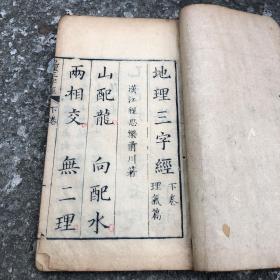 地理三字經 下卷 理氣篇
漢江程思樂前川著
山配龍 向配水
兩相交 無二理
下卷